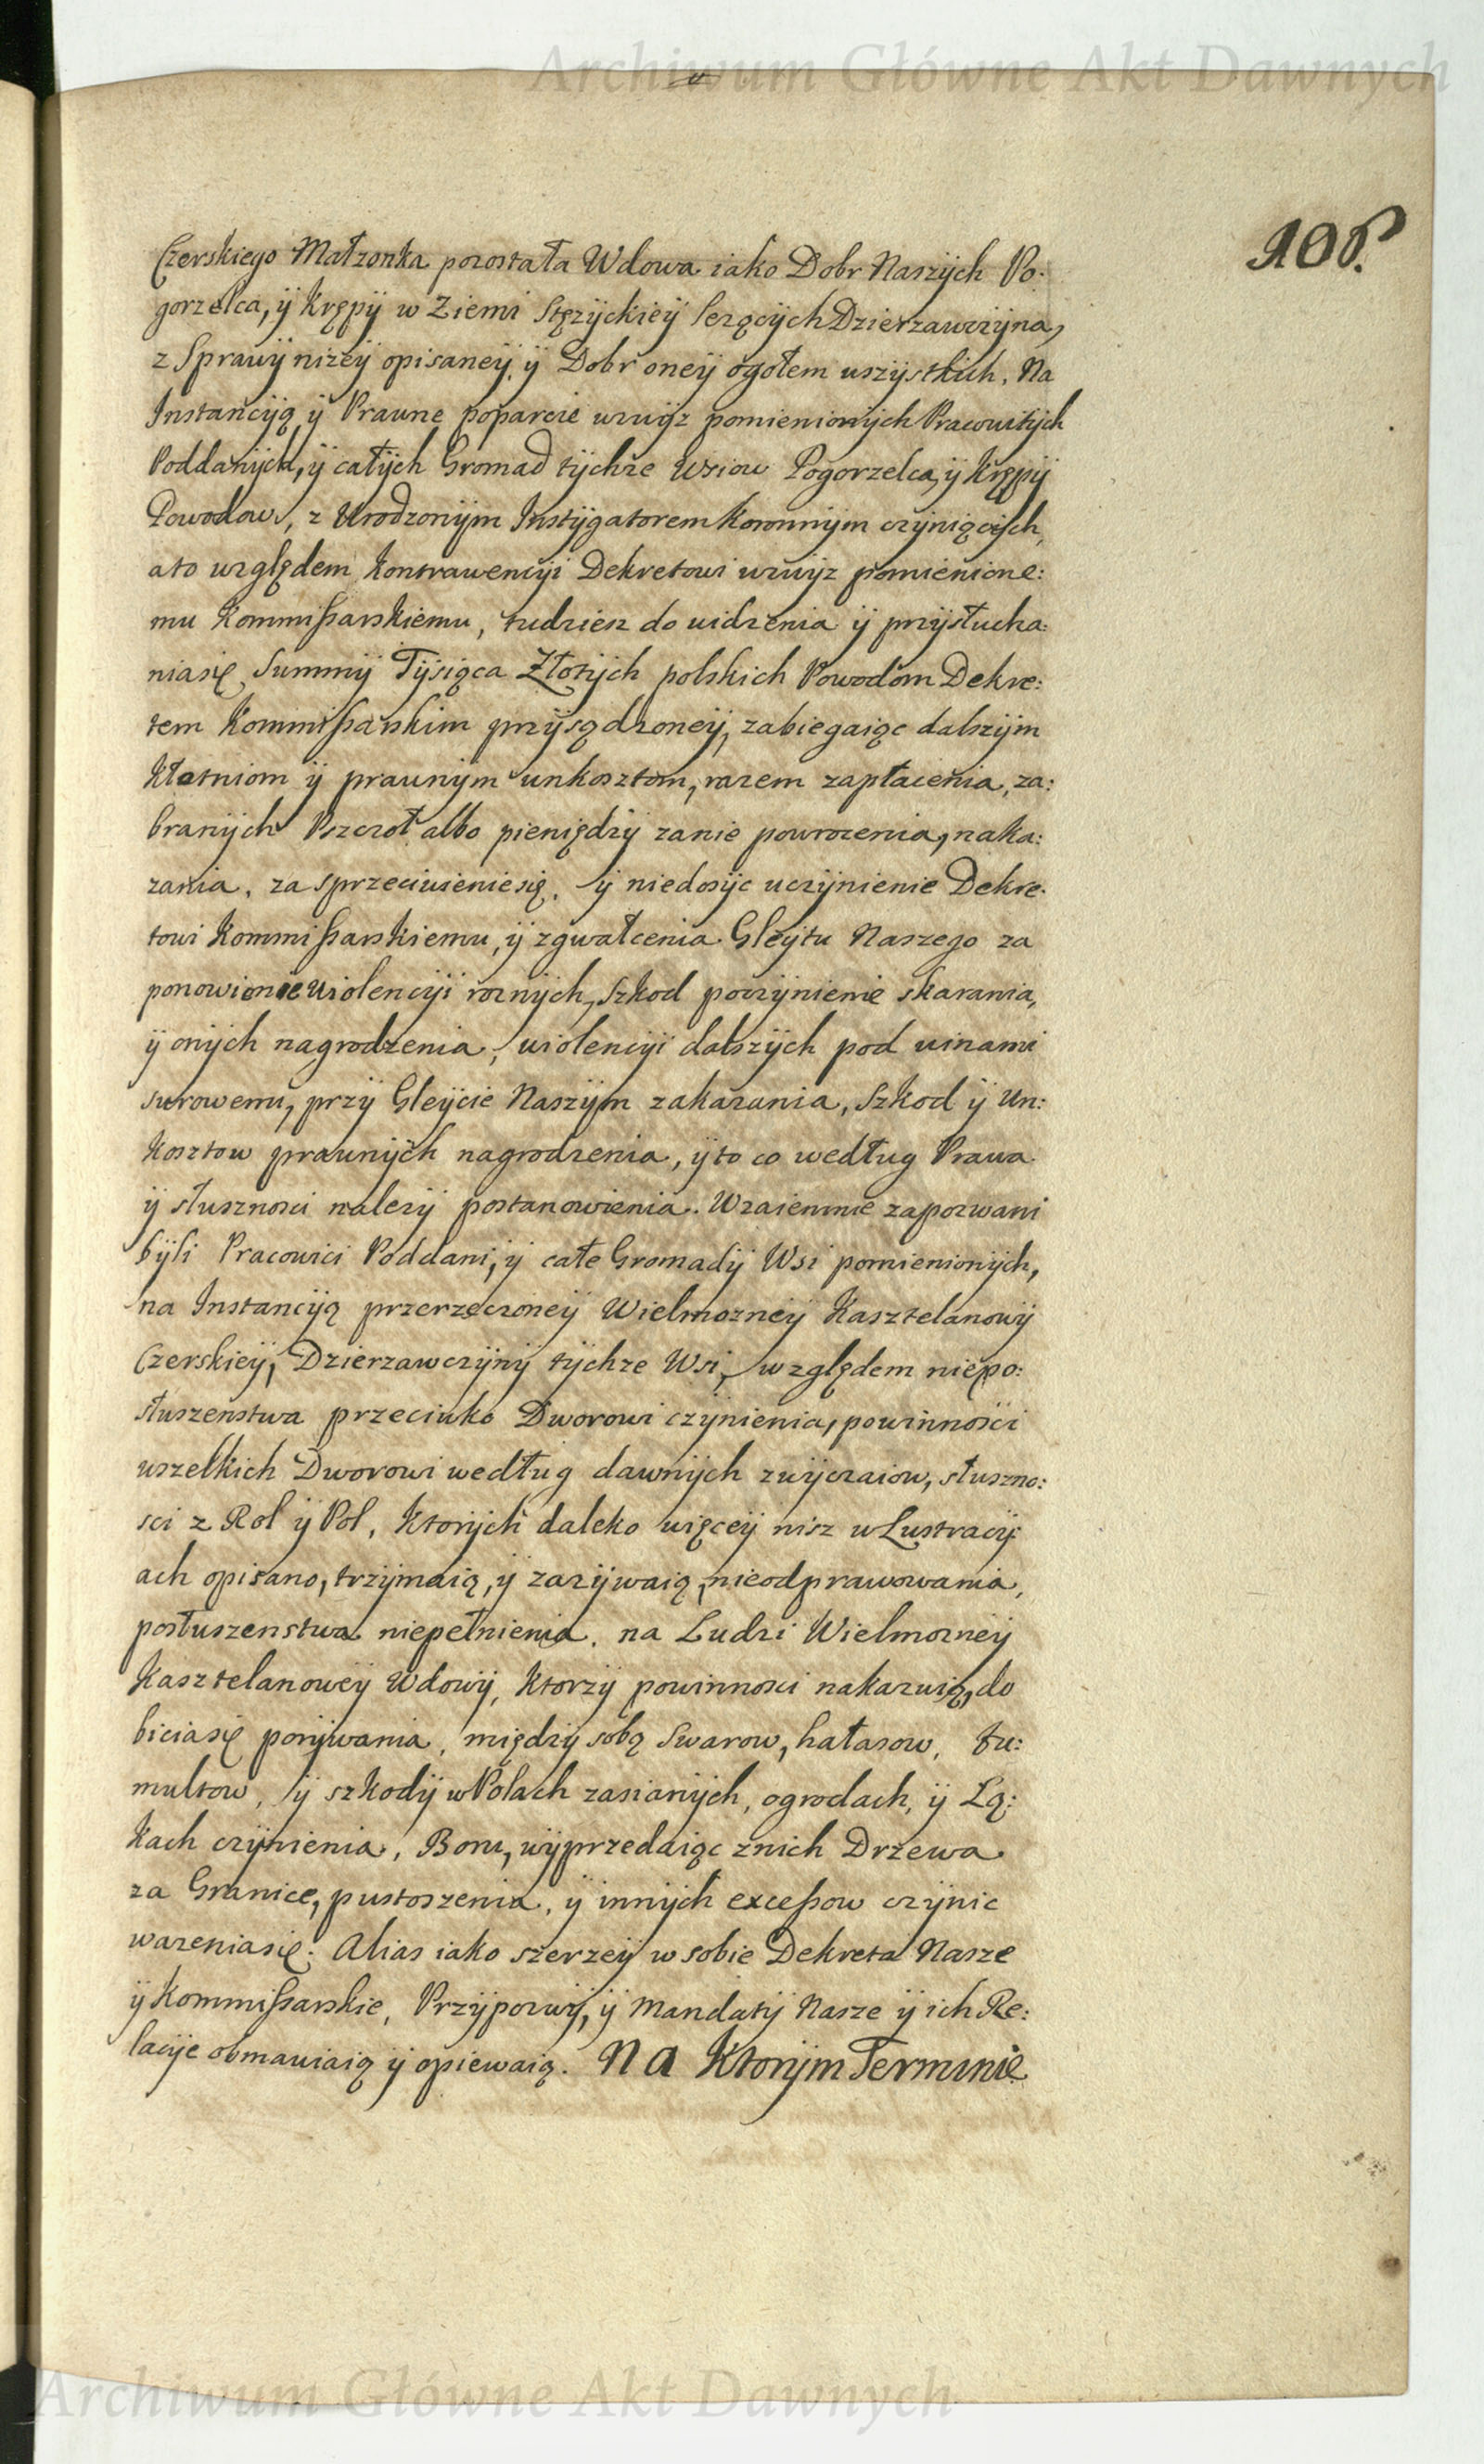 Archiwum Główne Akt Dawnych
108.
Czerskiego Małzonka pozostała Wdowa iako Dobr Naszÿch Po-
gorzelca, ÿ Krępÿ w Ziemi Stęzÿckieÿ lezącÿch Dzierzawczÿna,
z Sprawÿ nizeÿ opisaneÿ, ÿ Dobr oneÿ ogołem wszÿstkich. Na
Instancÿą ÿ Prawne poparcie wzwÿz pomienionÿch Pracowitÿch
Poddanÿch, ÿ całÿch Gromad tÿchze Wsiow Pogorzelca, ÿ Krępÿ
Powodow, z Urodzonÿm Instÿgatorem Koronnÿm czÿniącÿch,
ato względem Kontrawencÿi Dekretowi wzwÿz pomienione:
mu Kommißarskiemu, tudziesz do widzenia ÿ przÿsłucha:
niasię Summÿ Tÿsiąca Złotÿch polskich Powodom Dekre:
tem Kommißarskim przÿsądzoneÿ, zabiegaiąc dalszÿm
Kłotniom ÿ prawnÿm unkosztom, razem zapłacenia, za:
branÿch Pszczoł albo pieniędzÿ zanie powrocenia, naka:
zania, za sprzeciwieniesię, ÿ niedosÿc uczÿnienie Dekre-
towi Kommißarskiemu, ÿ zgwałcenia Gleÿtu Naszego za
ponowienie wiolencÿi roznÿch, Szkod poczÿnienie skarania,
ÿ onÿch nagrodzenia, wiolencÿi dalszÿch pod winami
surowemi, przÿ Gleÿcie Naszÿm zakazania, Szkod ÿ Un:
kosztow prawnÿch nagrodzenia, ÿ to co według Prawa
ÿ słusznosci nalezÿ postanowienia. Wzaiemnie zapozwani
bÿli Pracowici Poddani, ÿ całe Gromadÿ Wsi pomienionÿch,
na Instancÿą przerzeczoneÿ Wielmozneÿ Kasztelanowÿ
Czerskieÿ, Dzierzawczÿnÿ tÿchze Wsi, względem niepo:
słuszenstwa przeciwko Dworowi czÿnienia, powinnosci
wszelkich Dworowi według dawnÿch zwÿczaiow, słuszno:
sci z Rol ÿ Pol, Ktorÿch daleko więceÿ nisz w Lustracÿ:
ach opisano, trzÿmaią, ÿ zazÿwaią, nieodprawowania,
posłuszenstwa niepełnienia, na Ludzi Wielmozneÿ
Kasztelanoweÿ Wdowÿ, Ktorzÿ powinnosci nakazuią, do
biciasię porÿwania, międzÿ sobą Swarow, hałasow, tu:
multow, ÿ szkodÿ w Polach zasianÿch, ogrodach, ÿ Łą:
kach czÿnienia, Boru, wÿprzedaiąc znich Drzewa
za Granice, pustoszenia, ÿ innÿch exceßow czÿnic
wazeniasię. Alias iako szerzeÿ w sobie Dekreta Nasze
ÿ Kommißarskie, Przÿpozwÿ, ÿ Mandatÿ Nasze ÿ ich Re:
lacÿe obmawiaią ÿ opiewaią. Na Ktorÿm Terminie
Archiwum Główne Akt Dawnych